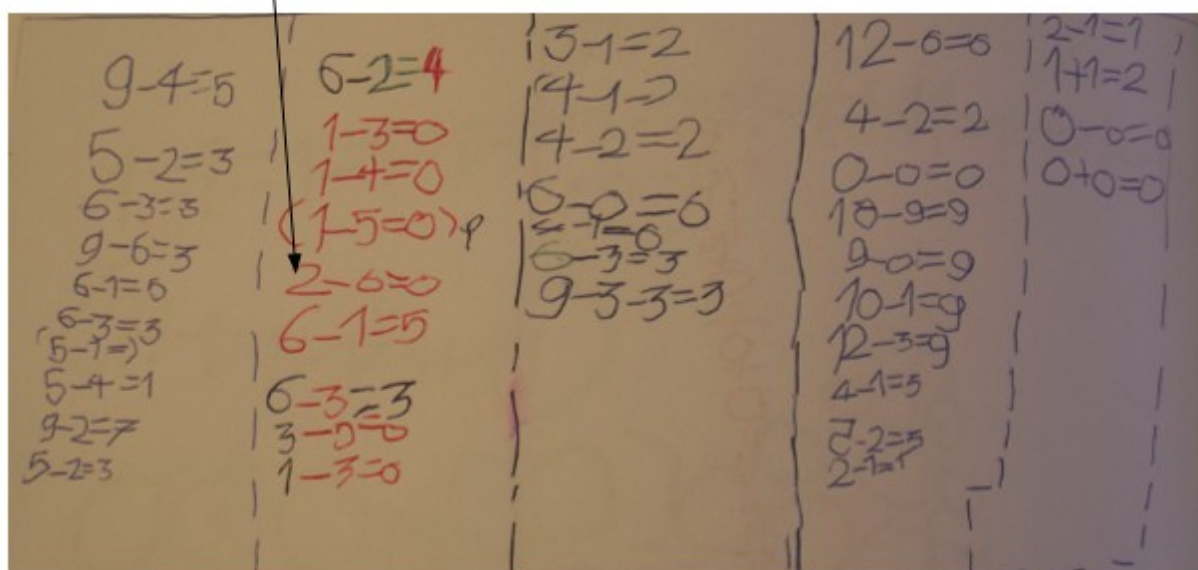 9-4=5
5-2=3
6-3=3
9-6=3
6-1=6
6-3=3
(5-1=)
5-4=1
9-2=7
5-2=3
6-2=4
1-3=0
1-4=0
(1-5=0)
2-6=0
6-1=5
6-3=3
3-5=0
1-3=0
3-1=2
4-1-
4-2=2
6-0=6
-1=6
6-3=3
9-3-3=3
12-6=6
4-2=2
0-0=0
10-9=9
9-0=9
10-1=9
12-3=9
4-1=3
5-2=3
2-1=1
2-1=1
1+1=2
0-0=0
0+0=0